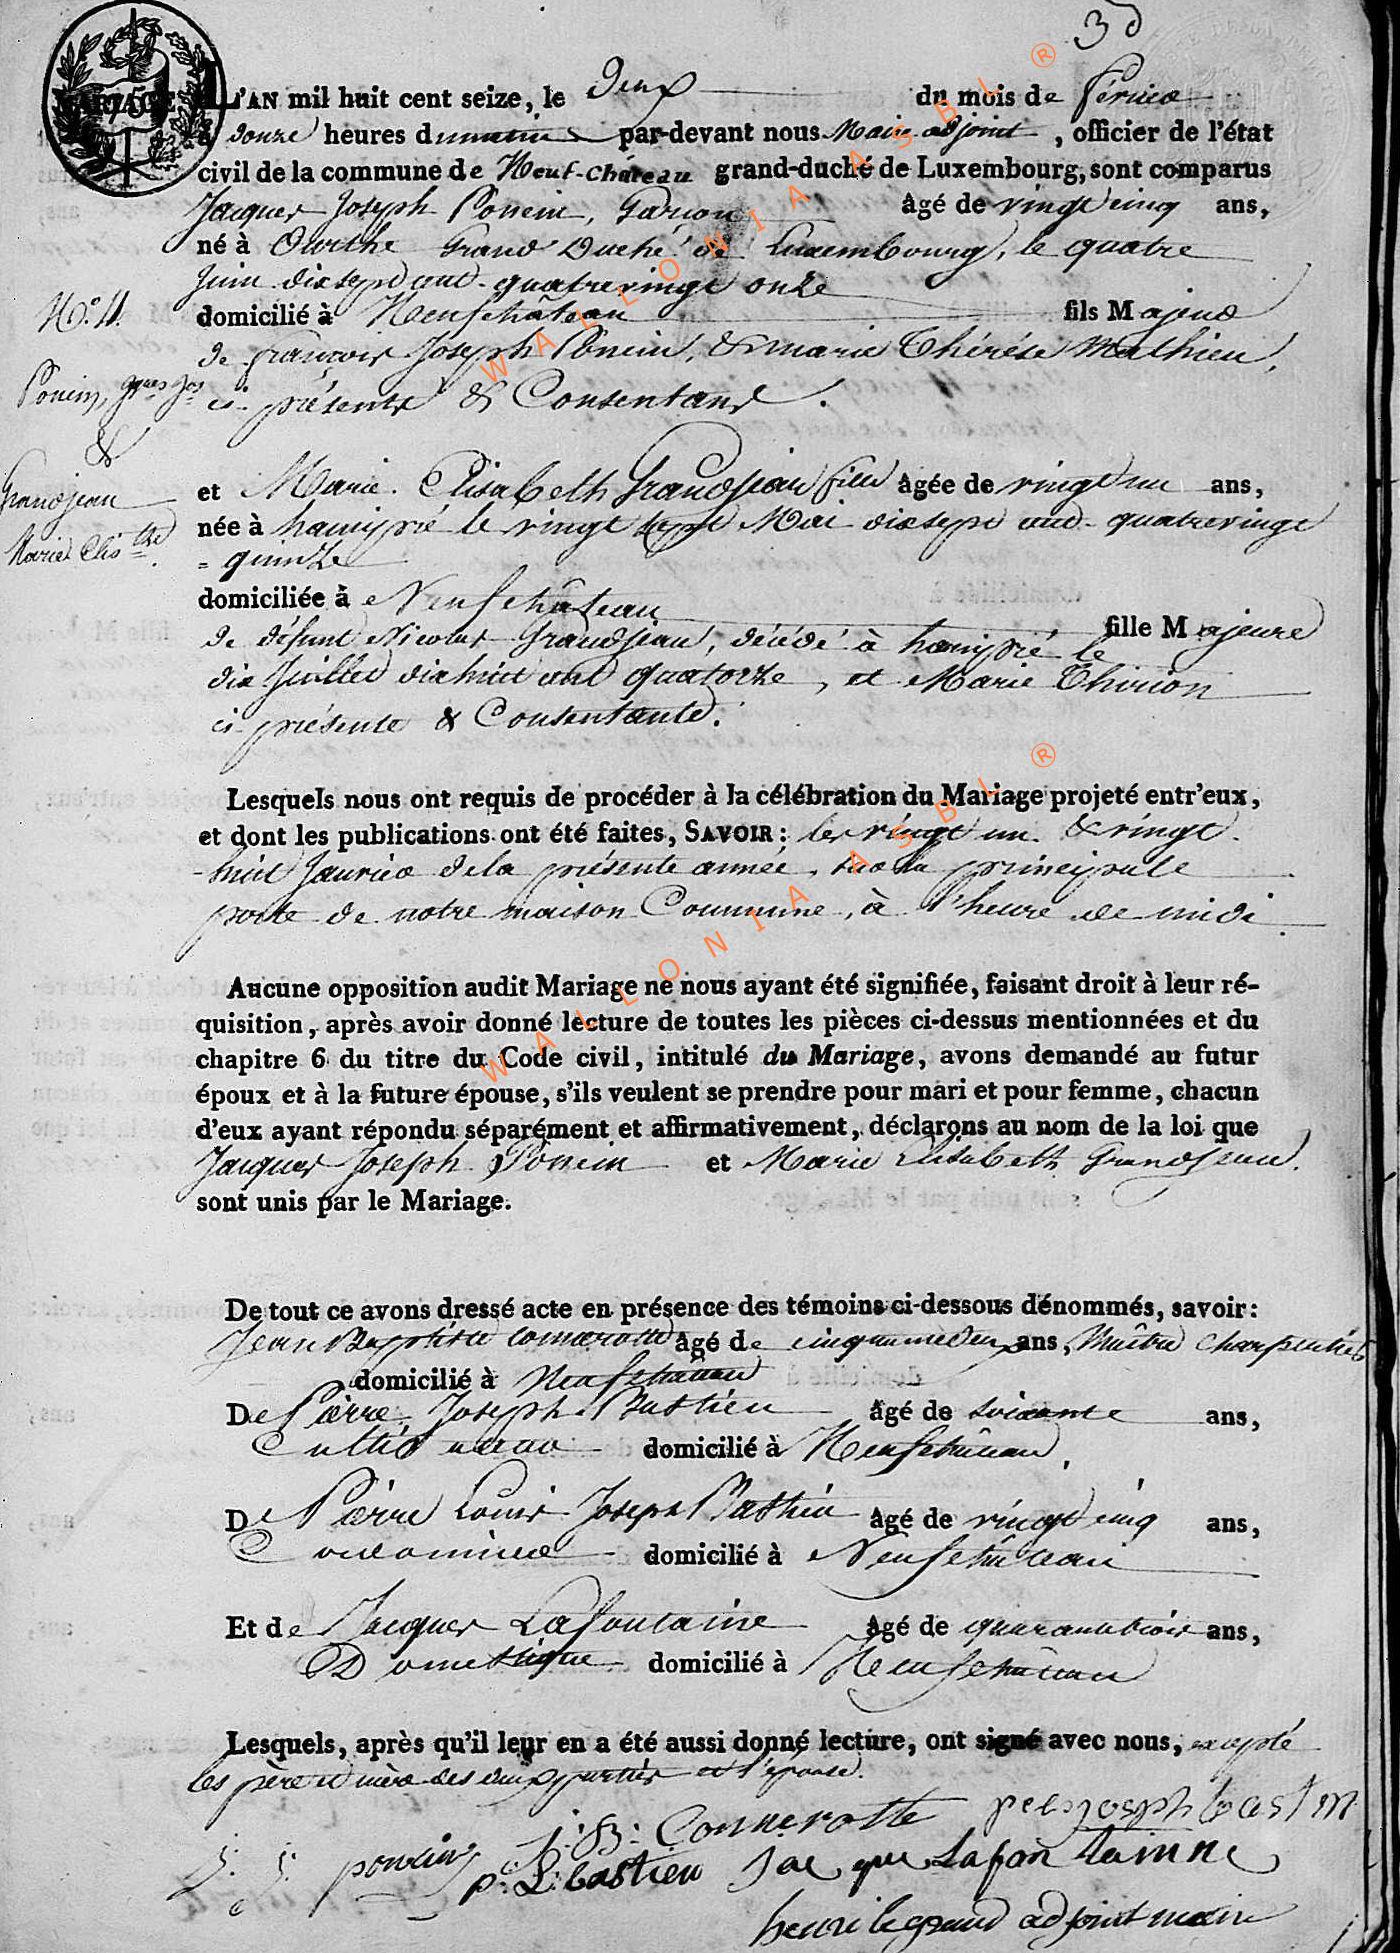 30
MARIAGE.
75
L'AN mil huit cent seize, le Deux du mois de février
à douze heures du matin par-devant nous Maire adjoint, officier de l'état
civil de la commune de Neuf-Château grand-duché de Luxembourg, sont comparus
Jacques Joseph Poncin, Garçon âgé de vingt cinq ans,
né à Ourthe Grand Duché de Luxembourg, le quatre
Juin dix sept cent quatre vingt onze
No. 11.
domicilié à Neufchâteau fils Majeur
de françois Joseph Poncin, & Marie Thérèse Mathieu,
Poncin, Jques Jos
ci-présents & Consentans.
&
et Marie Elisabeth Grandjean fille âgée de vingt un ans,
Grandjean
née à hamipré le vingt sept Mai dix sept cent quatre vingt
Marie Elis.the
= quinze
domiciliée à Neufchâteau fille Majeure
de défunt Nicolas Grandjean, décédé à hamipré le
dix Juillet dix huit cent quatorze, et Marie Thirion
ci-présente & Consentante.
Lesquels nous ont requis de procéder à la célébration du Mariage projeté entr'eux,
et dont les publications ont été faites, SAVOIR: les vingt un & vingt
huit Janvier de la présente année, sur la principale
porte de notre maison Commune, à l'heure de midi.
Aucune opposition audit Mariage ne nous ayant été signifiée, faisant droit à leur ré-
quisition, après avoir donné lecture de toutes les pièces ci-dessus mentionnées et du
chapitre 6 du titre du Code civil, intitulé du Mariage, avons demandé au futur
époux et à la future épouse, s'ils veulent se prendre pour mari et pour femme, chacun
d'eux ayant répondu séparément et affirmativement, déclarons au nom de la loi que
Jacques Joseph Poncin et Marie Elisabeth Grandjean.
sont unis par le Mariage.
De tout ce avons dressé acte en présence des témoins ci-dessous dénommés, savoir:
Jean Baptiste Connerotte âgé de cinquante deux ans, Maître Charpentier
domicilié à Neufchâteau
De Pierre Joseph Bastien âgé de soixante ans,
Cultivateur domicilié à Neufchâteau,
De Pierre Louis Joseph Bastien âgé de vingt cinq ans,
Cordonnier domicilié à Neufchâteau
Et de Jacques Lafontaine âgé de quarante trois ans,
Domestique domicilié à Neufchâteau
Lesquels, après qu'il leur en a été aussi donné lecture, ont signé avec nous, excepté
les père et mère des deux parties et l'épouse.
J: B: Connerotte
J. J. poncin p: L: bastien Jacque Lafontainne
henri legrand adjoint maire
WALLONIA ASBL ®
WALLONIA ASBL ®